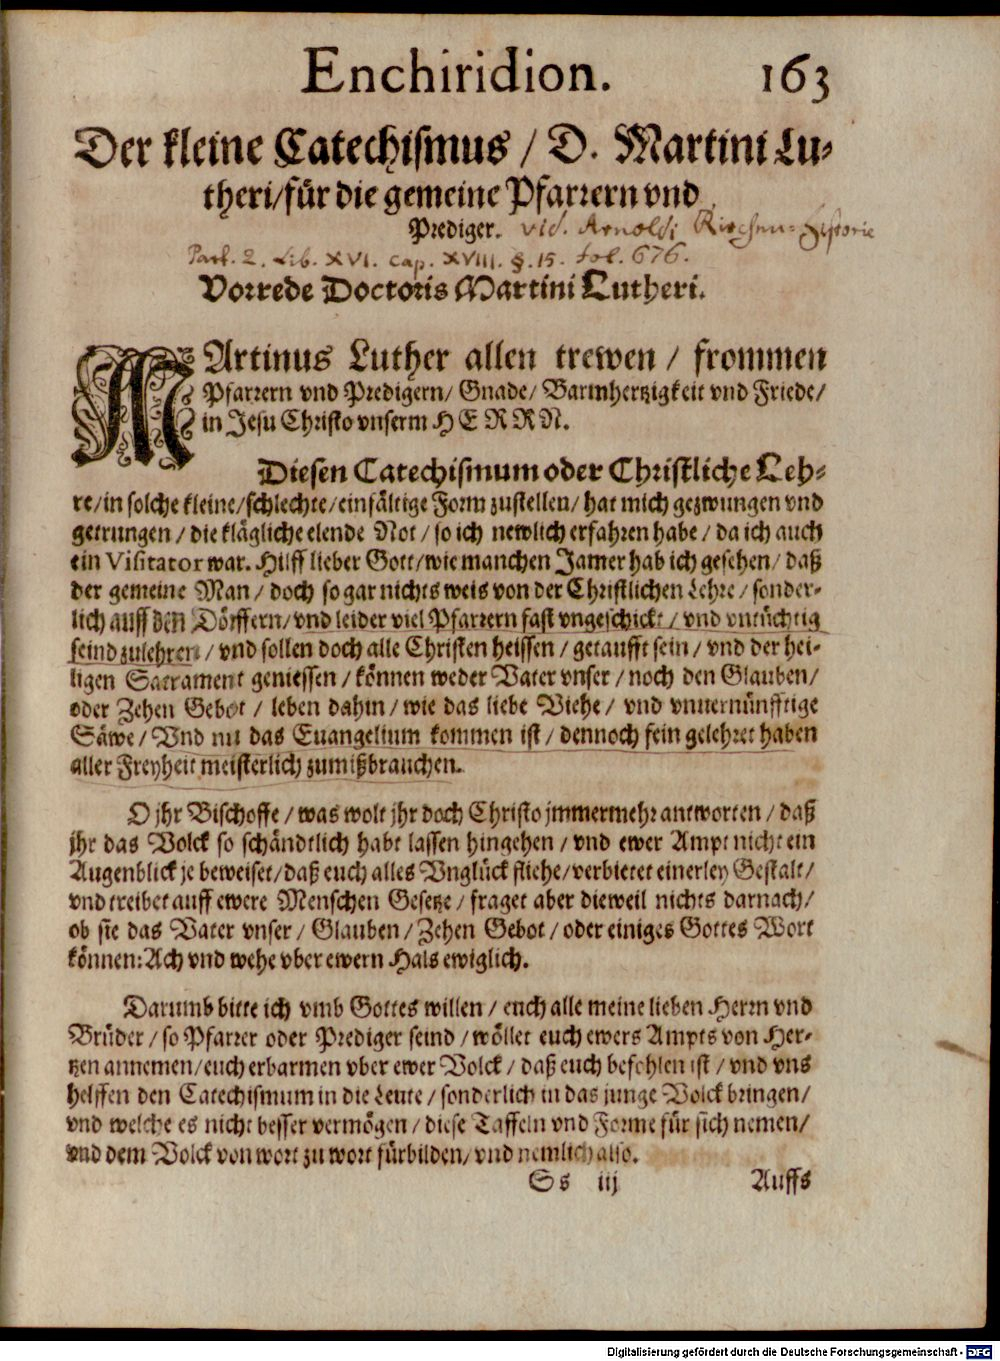 Enchiridion. 163
Der kleine Catechismus / D. Martini Lu-
theri/für die gemeine Pfarrern vnd
Prediger. vid. Arnoldi Kirchen-Historie
Part. 2. Lib. XVI. cap. XVIII. §. 15. fol. 676.
Vorrede Doctoris Martini Lutheri.
MArtinus Luther allen trewen / frommen
Pfarrern vnd Predigern/ Gnade/ Barmhertzigkeit vnd Friede/
in Jesu Christo vnserm HERRN.
Diesen Catechismum oder Christliche Leh-
re/in solche kleine/schlechte/einfältige Form zustellen/ hat mich gezwungen vnd
getrungen / die klägliche elende Not / so ich newlich erfahren habe / da ich auch
ein Visitator war. Hilff lieber Gott/wie manchen Jamer hab ich gesehen/ daß
der gemeine Man / doch so gar nichts weis von der Christlichen Lehre / sonder-
lich auff den Dörffern/vnd leider viel Pfarrern fast vngeschickt / vnd vntüchtig
seind zulehren / vnd sollen doch alle Christen heissen / getaufft sein / vnd der hei-
ligen Sacrament geniessen / können weder Vater vnser / noch den Glauben/
oder Zehen Gebot / leben dahin / wie das liebe Viehe / vnd vnuernünfftige
Säwe / Vnd nu das Euangelium kommen ist / dennoch fein gelehret haben
aller Freyheit meisterlich zumißbrauchen.
O jhr Bischoffe / was wolt jhr doch Christo jmmermehr antworten / daß
jhr das Volck so schändtlich habt lassen hingehen / vnd ewer Ampt nicht ein
Augenblick je beweiset/daß euch alles Vnglück fliehe/verbietet einerley Gestalt/
vnd treibet auff ewere Menschen Gesetze / fraget aber dieweil nichts darnach/
ob sie das Vater vnser / Glauben / Zehen Gebot / oder einiges Gottes Wort
können: Ach vnd wehe vber ewern Hals ewiglich.
Darumb bitte ich vmb Gottes willen / euch alle meine lieben Herrn vnd
Brüder / so Pfarrer oder Prediger seind / wöllet euch ewers Ampts von Her-
tzen annemen/euch erbarmen vber ewer Volck / daß euch befohlen ist / vnd vns
helffen den Catechismum in die Leute / sonderlich in das junge Volck bringen/
vnd welche es nicht besser vermögen / diese Taffeln vnd Forme für sich nemen/
vnd dem Volck von wort zu wort fürbilden/ vnd nemlich also.
Ss iij Auffs
Digitalisierung gefördert durch die Deutsche Forschungsgemeinschaft - DFG